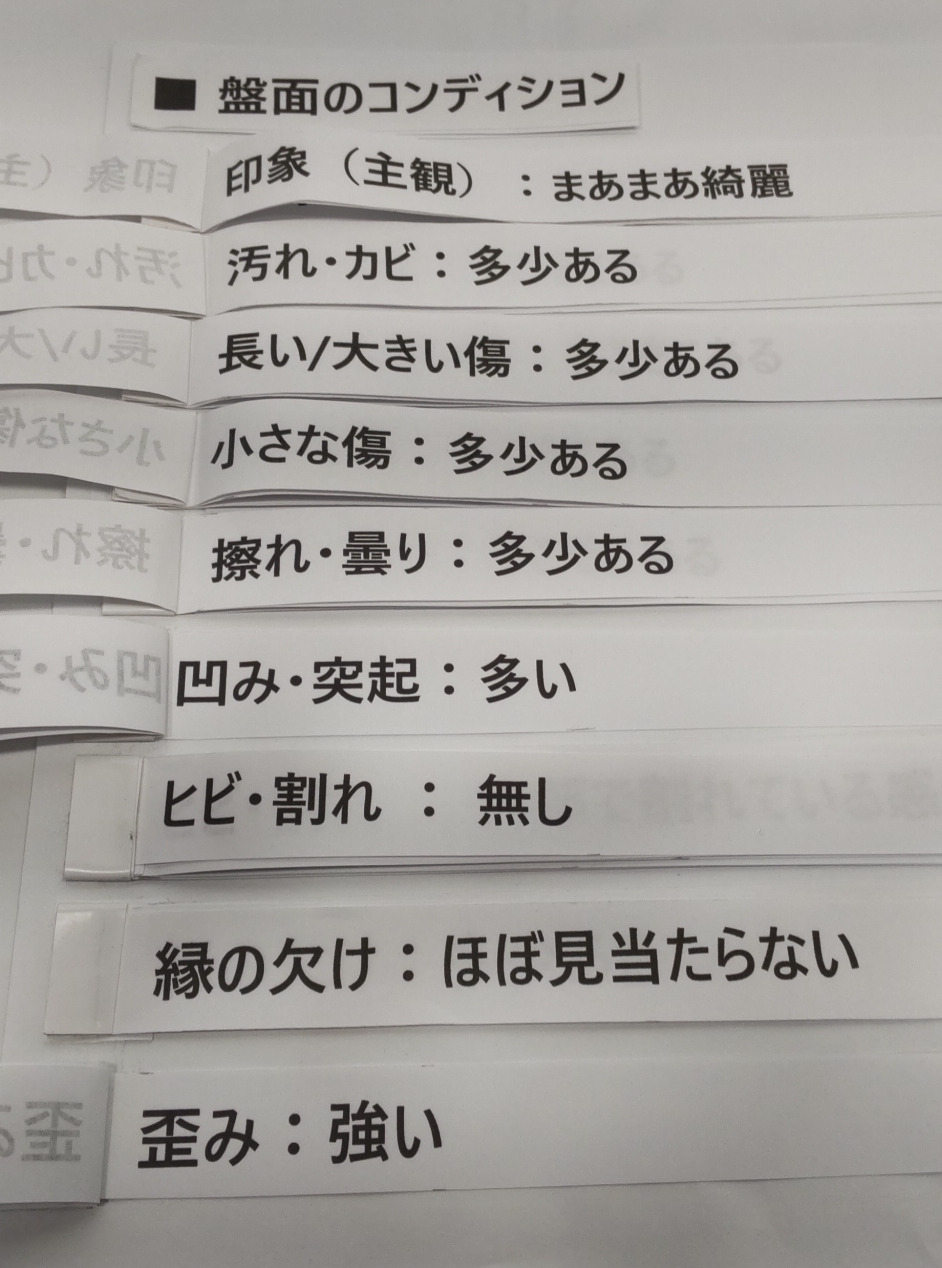 ■ 盤面のコンディション
印象（主観）：まあまあ綺麗
汚れ・カビ：多少ある
長い/大きい傷：多少ある
小さな傷：多少ある
擦れ・曇り：多少ある
凹み・突起：多い
ヒビ・割れ：無し
縁の欠け：ほぼ見当たらない
歪み：強い